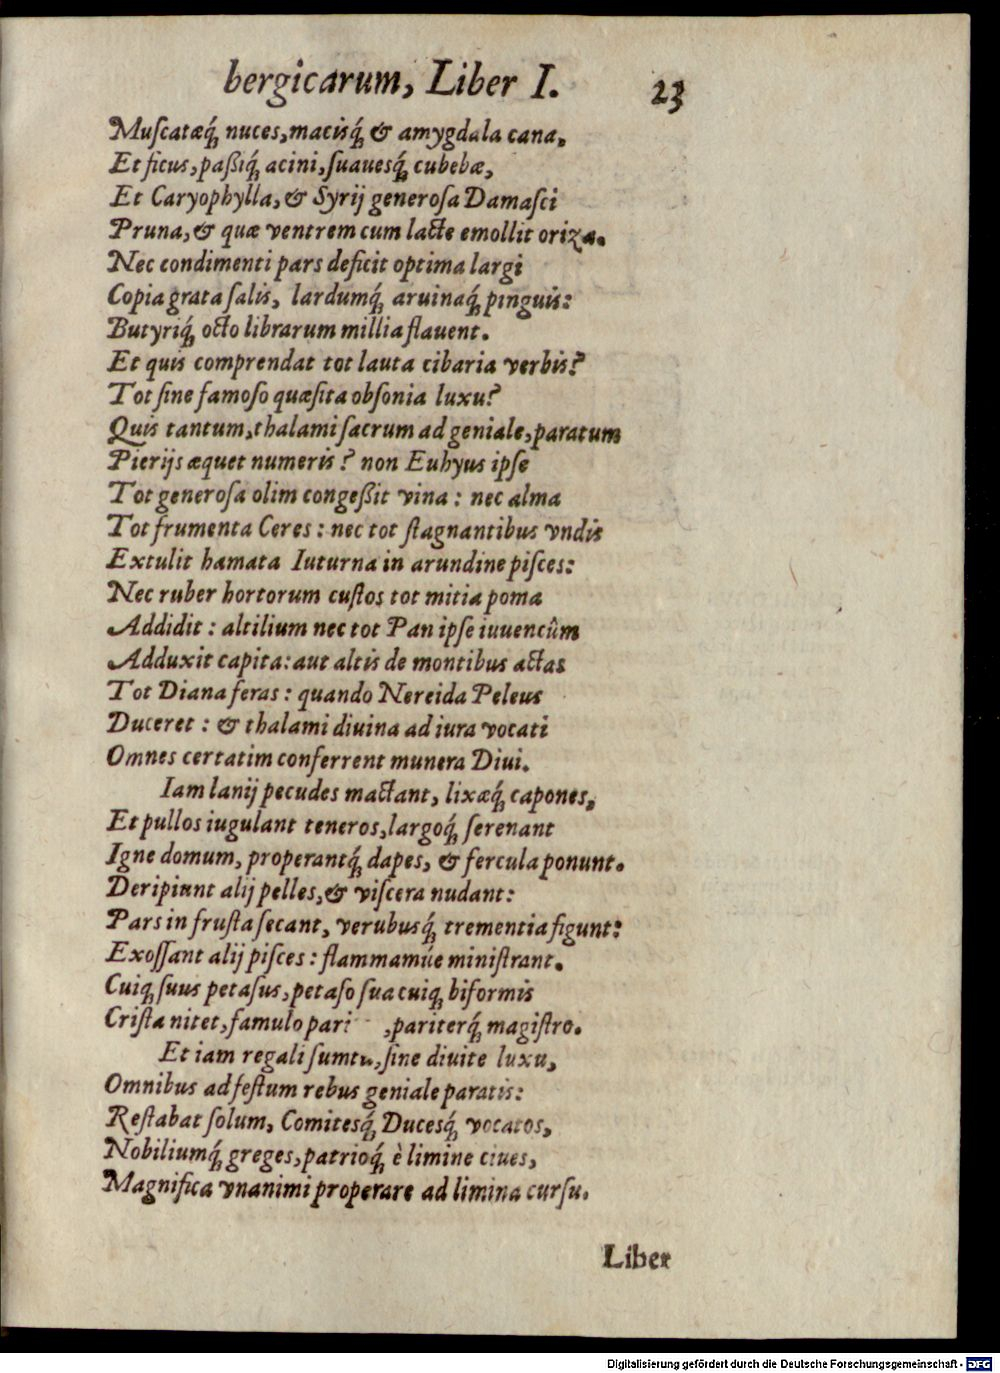 bergicarum, Liber I. 23
Muſcatæq́; nuces, macisq́; & amygdala cana,
Et ficus, paßiq́; acini, ſuauesq́; cubebæ,
Et Caryophylla, & Syrij generoſa Damaſci
Pruna, & quæ ventrem cum lacte emollit oriza.
Nec condimenti pars deficit optima largi
Copia grata ſalis, lardumq́; aruinaq́; pinguis:
Butyriq́; octo librarum millia flauent.
Et quis comprendat tot lauta cibaria verbis?
Tot ſine famoſo quæſita obſonia luxu?
Quis tantum, thalami ſacrum ad geniale, paratum
Pierijs æquet numeris? non Euhyus ipſe
Tot generoſa olim congeßit vina: nec alma
Tot frumenta Ceres: nec tot ſtagnantibus vndis
Extulit hamata Iuturna in arundine piſces:
Nec ruber hortorum cuſtos tot mitia poma
Addidit: altilium nec tot Pan ipſe iuuencûm
Adduxit capita: aut altis de montibus actas
Tot Diana feras: quando Nereida Peleus
Duceret: & thalami diuina ad iura vocati
Omnes certatim conferrent munera Diui.
Iam lanij pecudes mactant, lixæq́; capones,
Et pullos iugulant teneros, largoq́; ſerenant
Igne domum, properantq́; dapes, & fercula ponunt.
Deripiunt alij pelles, & viſcera nudant:
Pars in fruſta ſecant, verubusq́; trementia figunt:
Exoſſant alij piſces: flammamúe miniſtrant.
Cuiq; ſuus petaſus, petaſo ſua cuiq; biformis
Criſta nitet, famulo pari , pariterq́; magiſtro.
Et iam regali ſumtu, ſine diuite luxu,
Omnibus ad feſtum rebus geniale paratis:
Reſtabat ſolum, Comitesq́; Ducesq́; vocatos,
Nobiliumq́; greges, patrioq́; è limine ciues,
Magnifica vnanimi properare ad limina curſu.
Liber
Digitalisierung gefördert durch die Deutsche Forschungsgemeinschaft - DFG